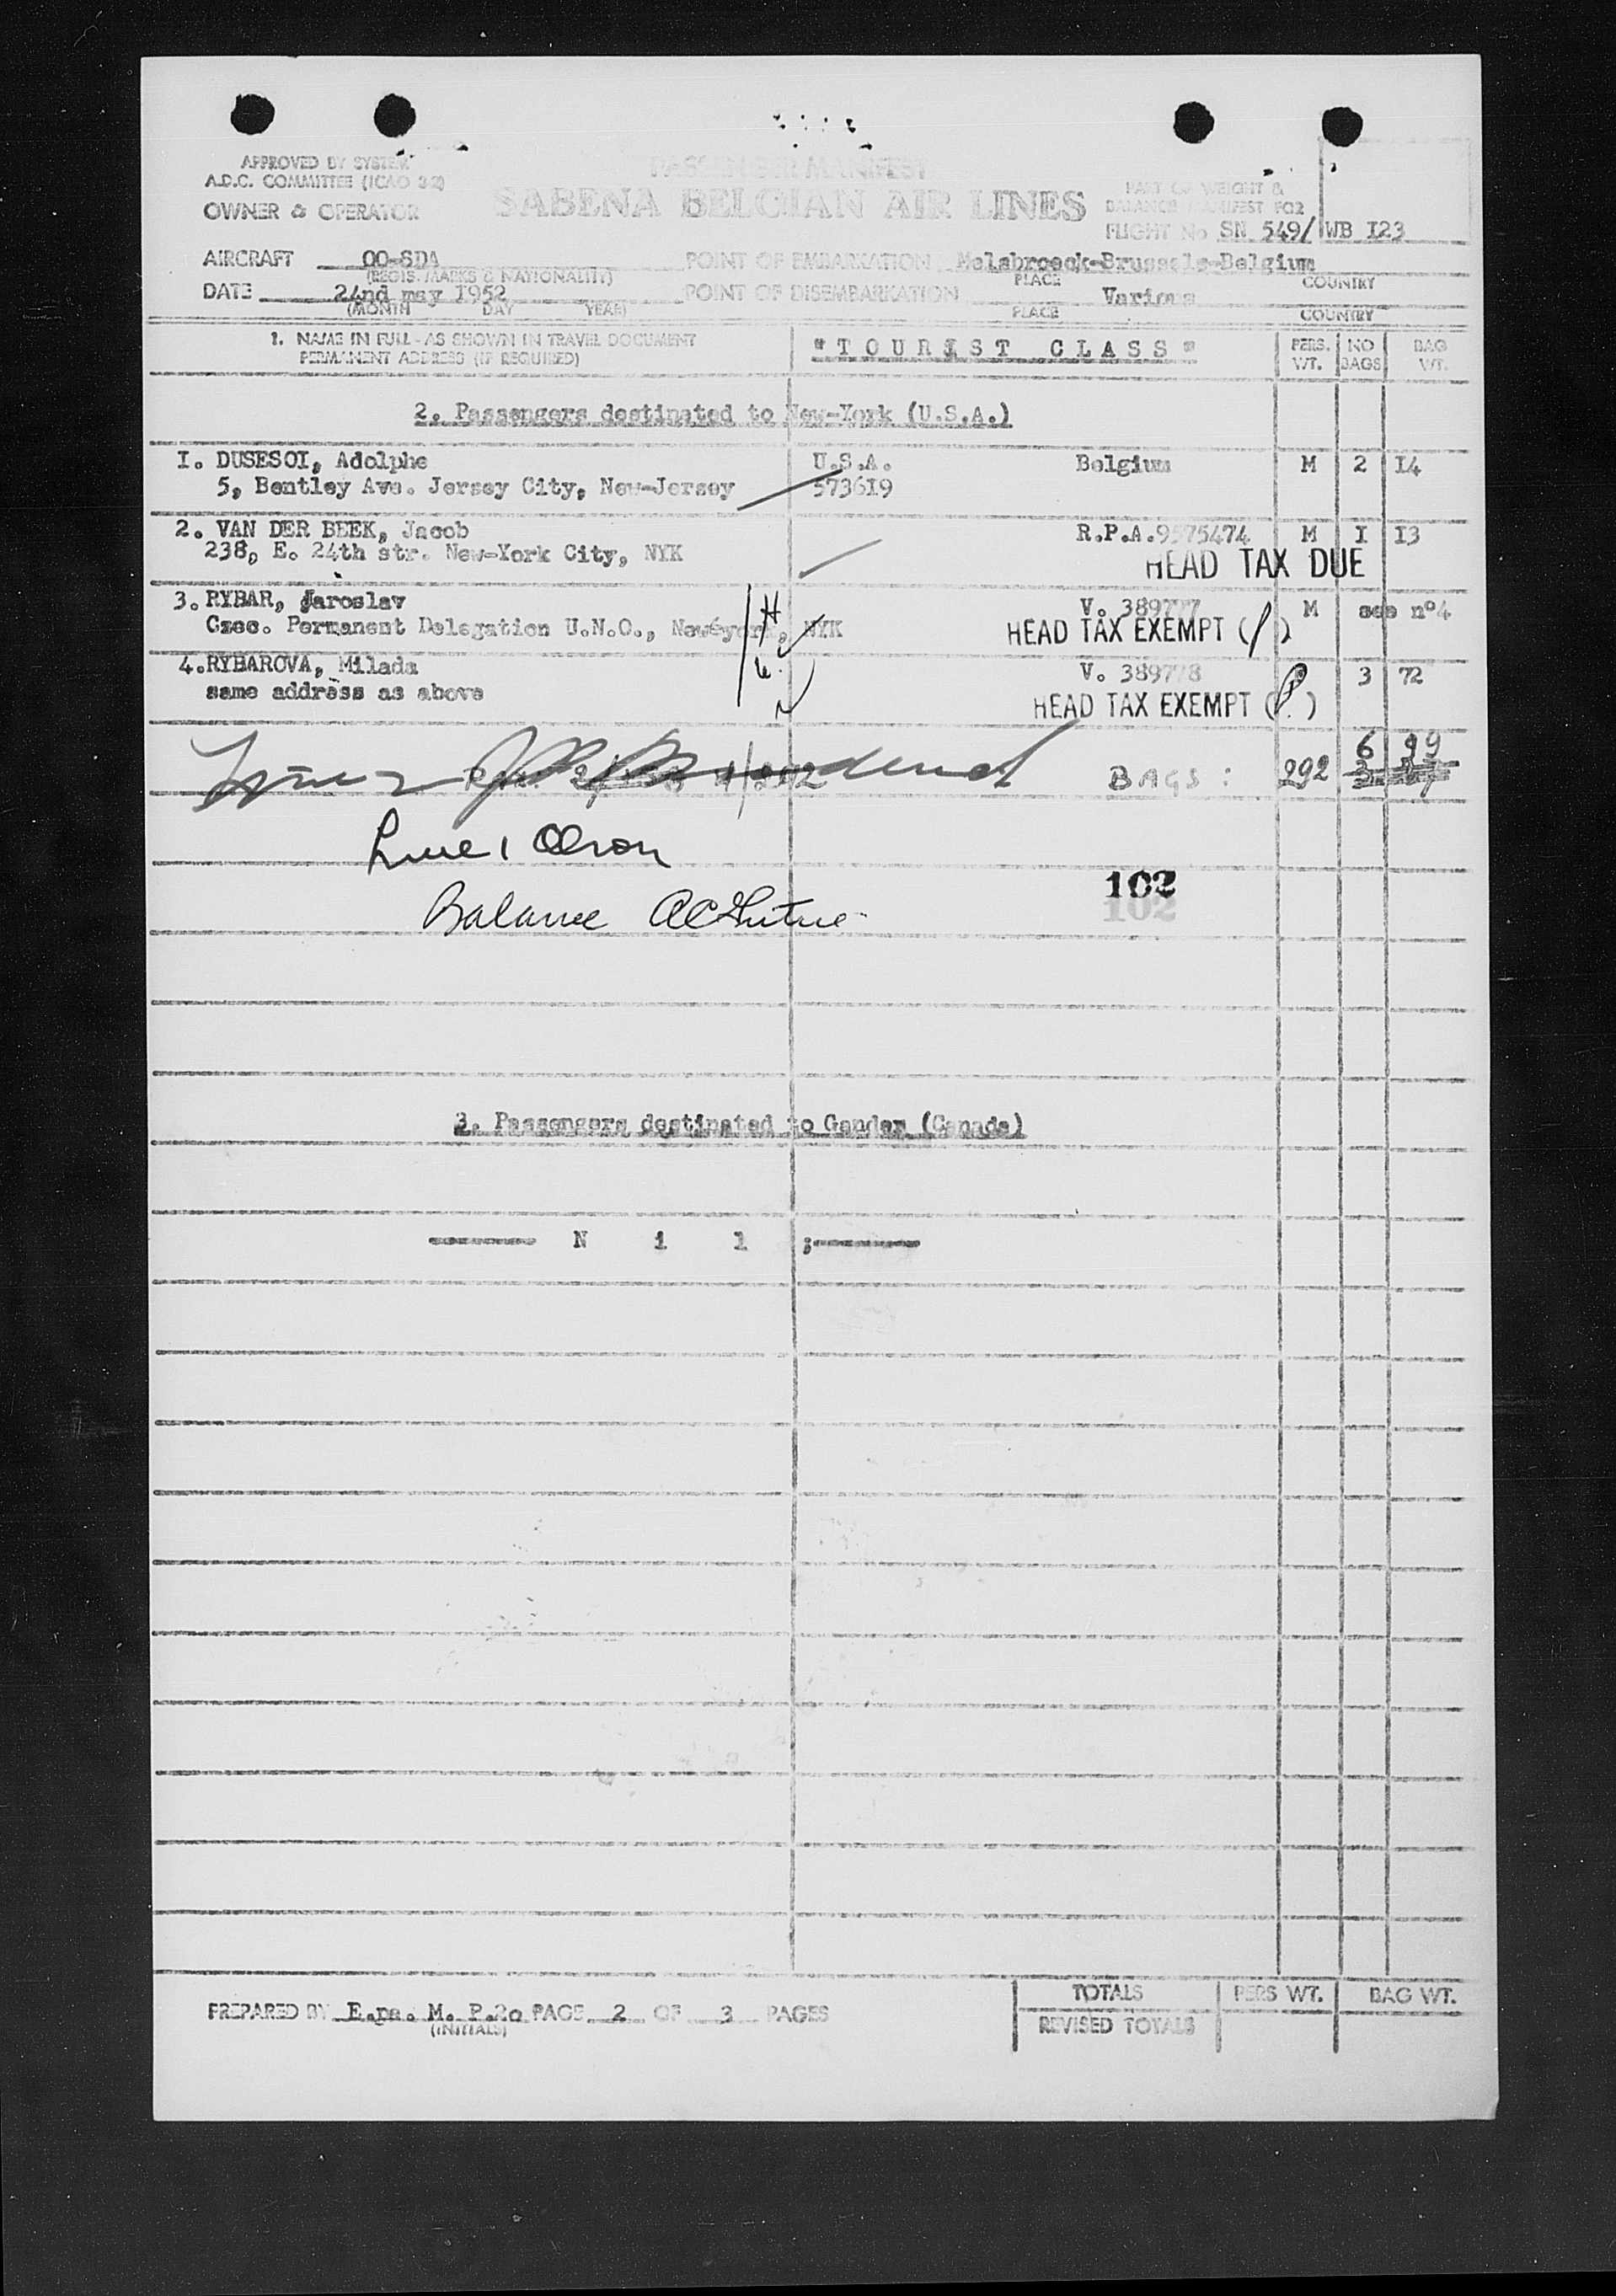 APPROVED BY SYSTEM
A.D.C. COMMITTEE (ICAO 3-2)
OWNER & OPERATOR
PASSENGER MANIFEST
SABENA BELGIAN AIR LINES
PART OF WEIGHT &
BALANCE MANIFEST FOR
FLIGHT No SN 549/ WB I23
AIRCRAFT OO-SDA
(REGIS. MARKS & NATIONALITY)
POINT OF EMBARKATION Melsbroeck-Brussels-Belgium
PLACE COUNTRY
DATE 24nd may 1952
(MONTH DAY YEAR)
POINT OF DISEMBARKATION Various
PLACE COUNTRY
1. NAME IN FULL - AS SHOWN IN TRAVEL DOCUMENT
PERMANENT ADDRESS (IF REQUIRED)
"TOURIST CLASS"
PERS. WT. NO BAGS BAG WT.
2. Passengers destinated to New-York (U.S.A.)
I. DUSESOI, Adolphe U.S.A. Belgium M 2 I4
5, Bentley Ave. Jersey City, New-Jersey 5736I9
2. VAN DER BEEK, Jacob R.P.A.9575474 M I I3
238, E. 24th str. New-York City, NYK HEAD TAX DUE
3. RYBAR, Jaroslav V. 389777 M see nº4
Czec. Permanent Delegation U.N.O., Newéyork, NYK HEAD TAX EXEMPT ( )
4. RYBAROVA, Milada V. 389778 3 72
same address as above HEAD TAX EXEMPT ( )
6 99
BAGS : 292
Line 1 Olson
Balance
102
102
3. Passengers destinated to Gander (Canada)
-------- N i l ;--------
PREPARED BY E.pa. M. P.2o PAGE 2 OF 3 PAGES
(INITIALS)
TOTALS PERS WT. BAG WT.
REVISED TOTALS